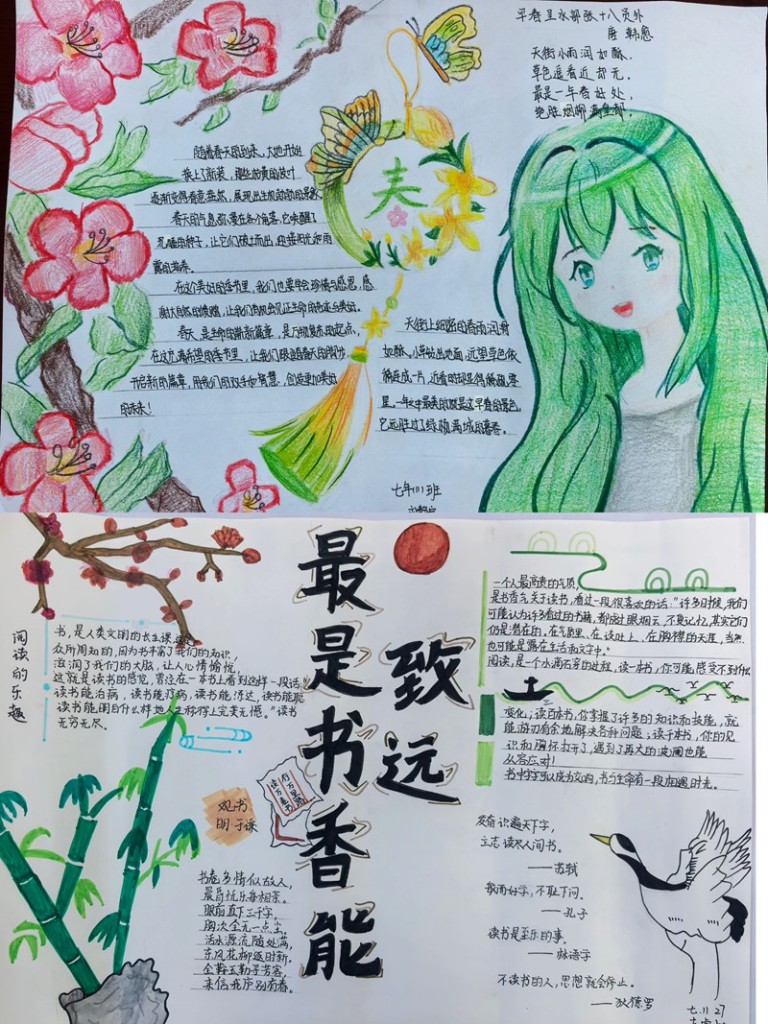 早春呈水部张十八员外
唐 韩愈
天街小雨润如酥,
草色遥看近却无。
最是一年春好处,
绝胜烟柳满皇都。
随着春天的到来,大地开始
换上了新装,
逐渐变得春意盎然,展现出生机勃勃的景象
春天的气息弥漫在各个角落,它唤醒了
沉睡的种子,让它们破土而出,迎接阳光和雨
露的滋养。
在这个美好的季节里,我们也要学会珍惜与感恩,感
谢大自然的馈赠,让我们有机会见证生命的
春天,是生命的崭新篇章,是万物复苏的起点,
在这充满希望的季节里,让我们跟随春天的脚步,
开启新的篇章,用我们的双手和智慧,创造更加美好
的未来!
春
天街上细密的春雨润滑
如酥,小草钻出地面,远望草色依
稀连成一片,近看时却显得稀疏零
星。一年之中最美的就是这早春的景色,
它远胜过了绿柳满城的暮春。
七年 班
最是书香能
致远
阅读的乐趣
书,是人类文明的长生
众所周知的,因为书丰富了我们的知识,
滋润了我们的大脑,让人心情愉悦,
这就是读书的感觉,曾经在一本书上看到这样一段话
读书能治病,读书能疗病,读书能博达,读书能聪
读书能明白什么样地人生称得上完美无憾。"读书
无穷无尽。
读万卷书
行万里路
观书
明 于谦
书卷多情似故人,
晨昏忧乐每相亲。
眼前直下三千字,
胸次全无一点尘。
活水源流随处满,
东风花柳逐时新。
金鞍玉勒寻芳客,
未信我庐别有春。
一个人最高贵的气质,
是书香气关于读书,看过一段很喜欢的话:"许多时候,我们
可能认为许多看过的书籍,都成过眼烟云,不复记忆,其实它们
仍是潜在的,在气质里、在谈吐上、在胸襟的无涯,当然
也可能是露在生活和文字中。"
阅读,是一个水滴石穿的过程,读一本书,你可能感受不到什么
变化;读百本书,你掌握了许多的知识和技能,就
能游刃有余地解决各种问题;读千本书,你的见
识和胸怀打开了,遇到了再大的波澜也能
从容应对!
发奋识遍天下字,
立志读尽人间书。
——苏轼
敏而好学,不耻下问。
——孔子
读书是至乐的事。
——林语堂
不读书的人,思想就会停止。
——狄德罗
七.11 27